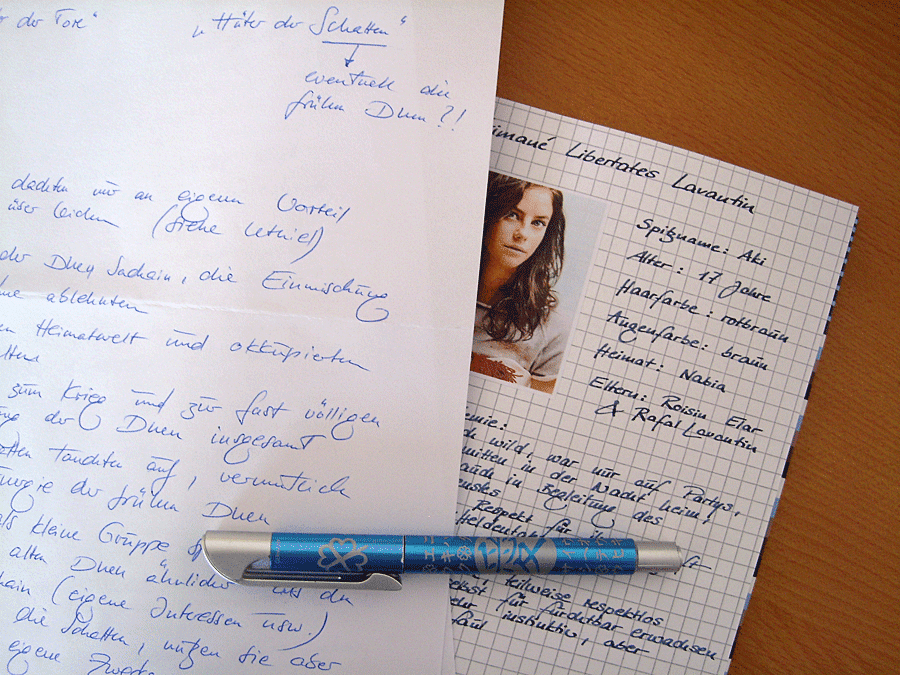 der Tore" „Hüter der Schatten"
eventuell die
frühen Dhen?!
dachten nur an eigenen Vorteil
über leiden (siehe Uthiel)
der Dhen Sachain, die Einmischung
ablehnten
Heimatwelt und okkupierten
zum Krieg und zur fast völligen
der Dhen insgesamt
tauchten auf, vermutlich
der frühen Dhen
als kleine Gruppe
alten Dhen ähnlicher als den
(eigene Interessen usw.)
die Schatten, nutzen sie aber
eigene Zwecke
Libertates Lavantin
Spitzname: Aki
Alter: 17 Jahre
Haarfarbe: rotbraun
Augenfarbe: braun
Heimat: Nabia
Eltern: Roisin Elar
& Rafal Lavantin
wild, war nur auf Partys,
mitten in der Nacht heim!
auch in Begleitung des
Respekt für
teilweise respektlos
selbst für furchtbar erwachsen
instinktiv, aber
faul